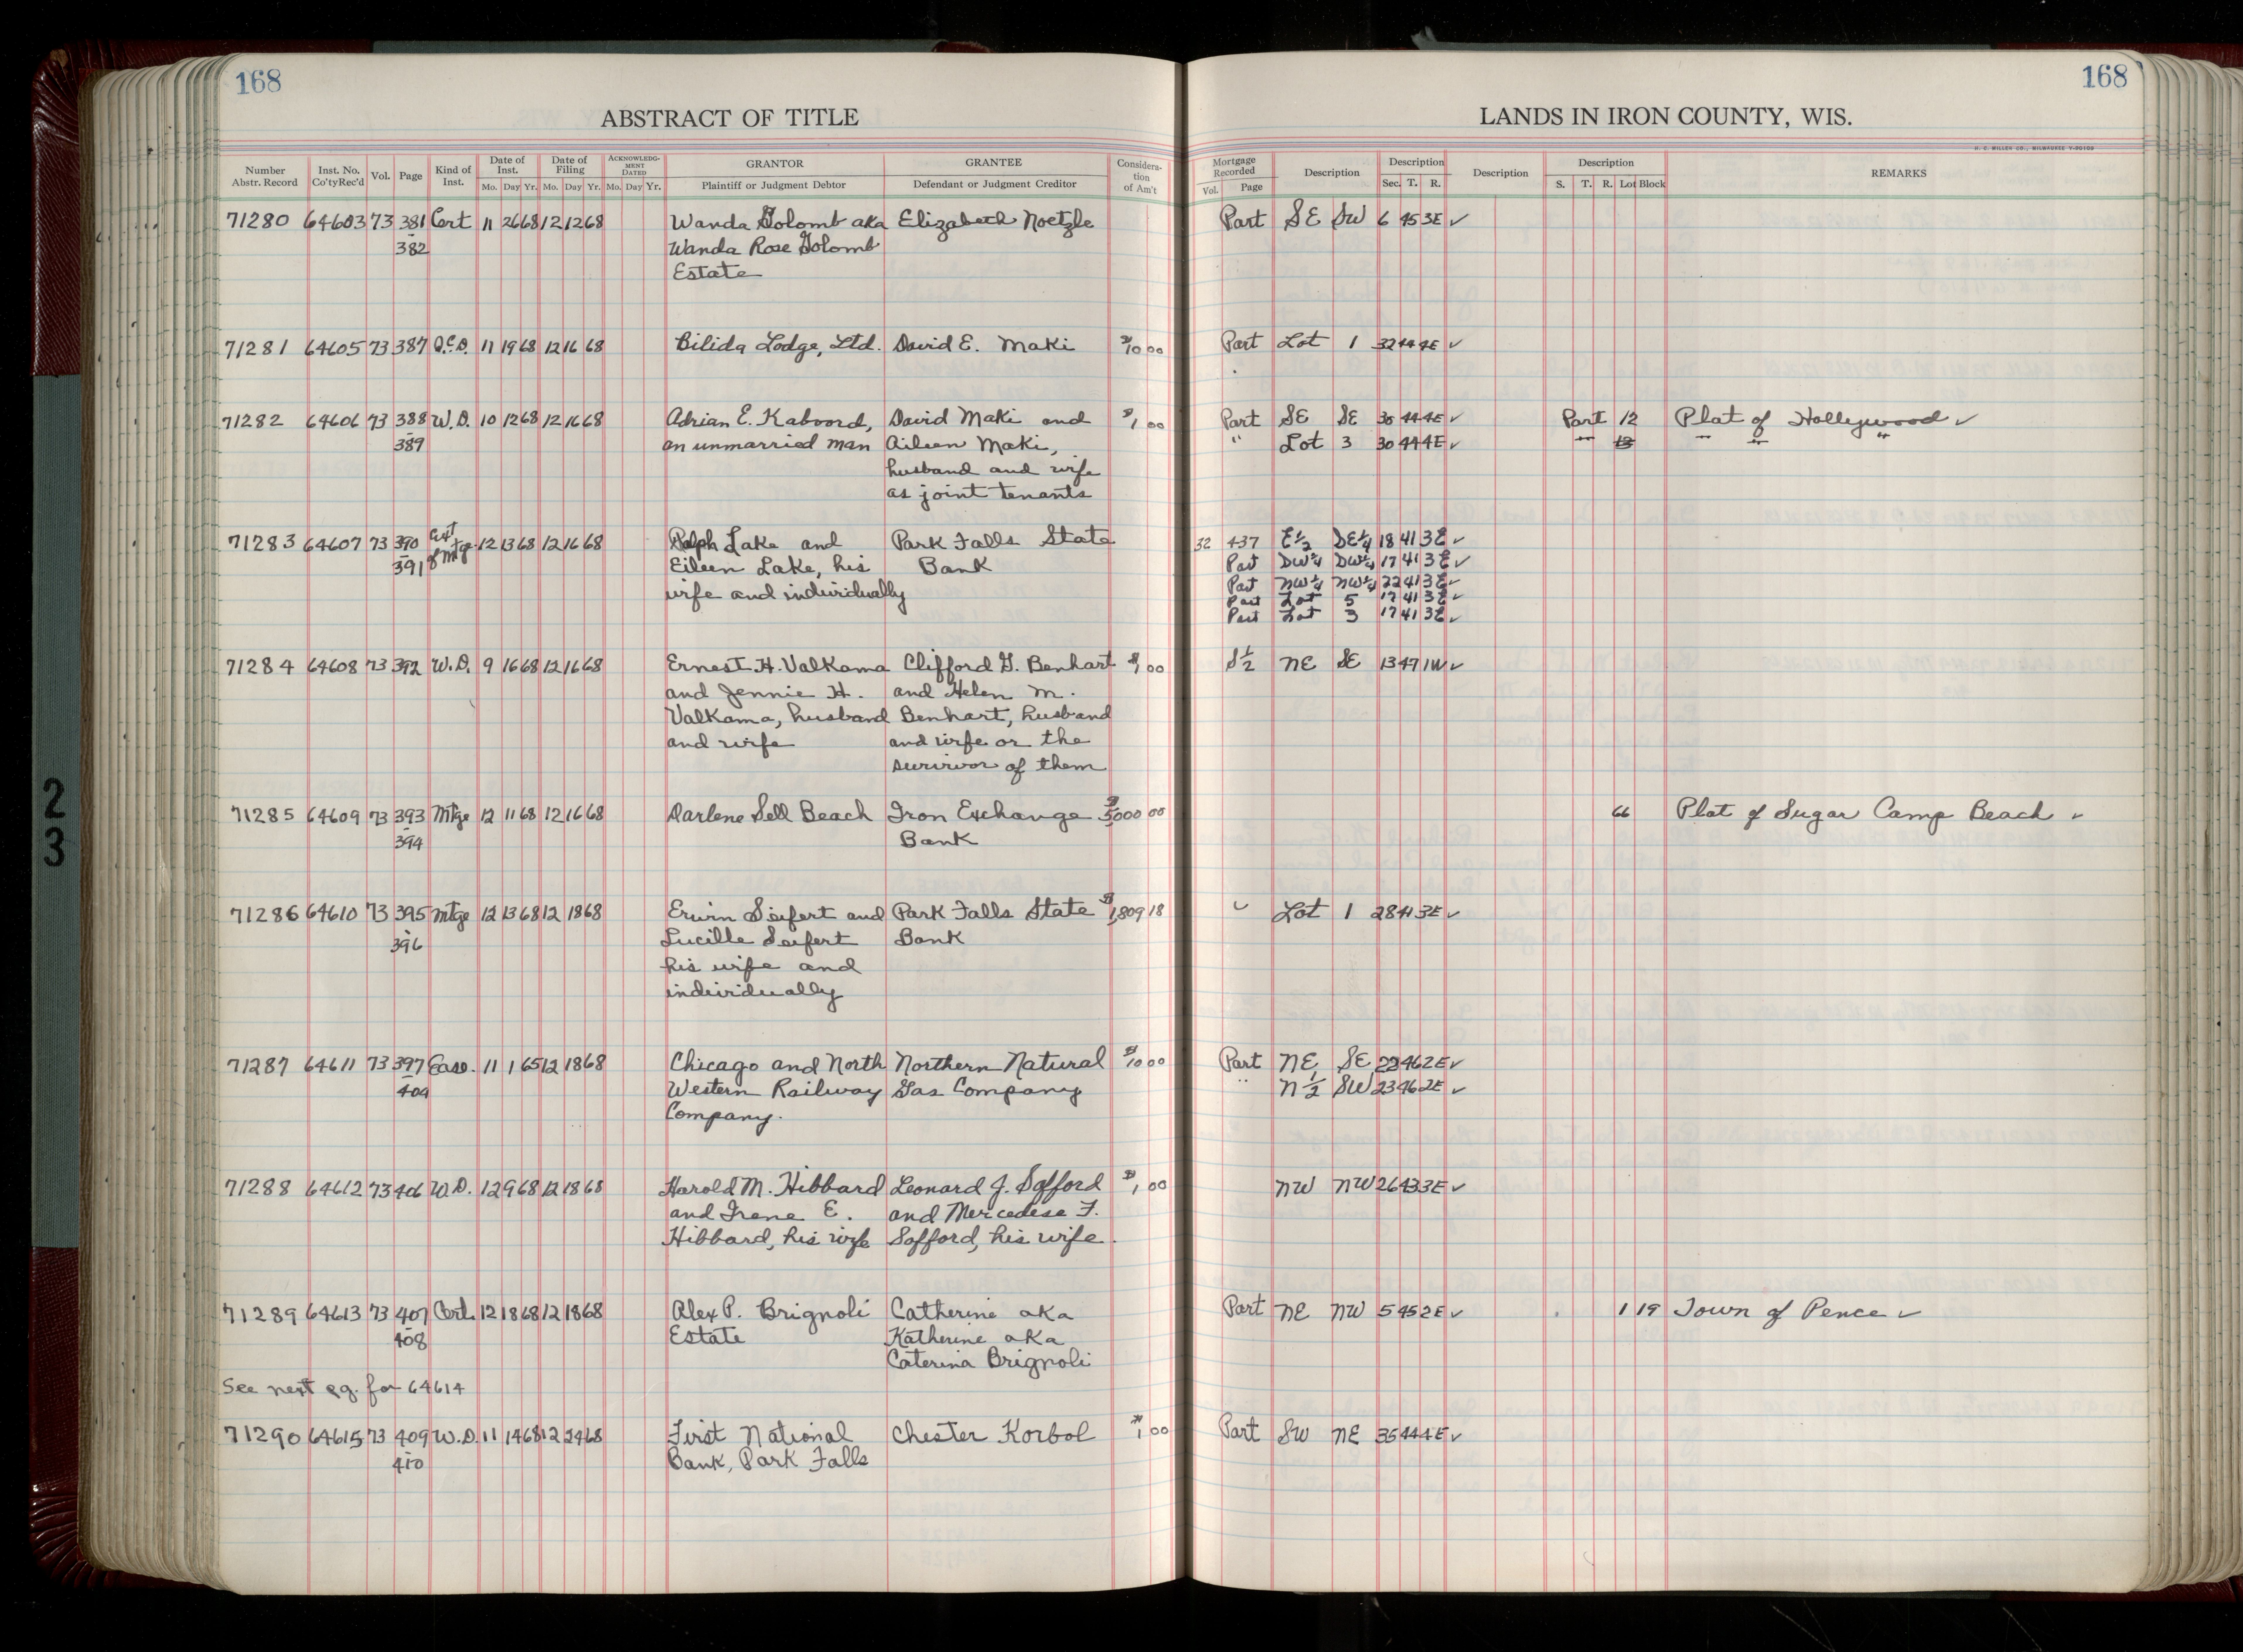 168
168
ABSTRACT OF TITLE
LANDS IN IRON COUNTY, WIS.
H. C. MILLER CO., MILWAUKEE
Number Abstr. Record Inst. No. Co'tyRec'd Vol. Page Kind of Inst. Date of Inst. Mo. Day Yr. Date of Filing Mo. Day Yr. ACKNOWLEDGMENT DATED Mo. Day Yr. GRANTOR Plaintiff or Judgment Debtor GRANTEE Defendant or Judgment Creditor Consideration of Am't Mortgage Recorded Vol. Page Description Description Sec. T. R. Description Description S. T. R. Lot Block REMARKS
71280 64603 73 381 Cert 11 26 68 12 12 68 Wanda Golomb aka Elizabeth Noetzle Part SE SW 6 45 3E ✓
382 Wanda Rose Golomb
Estate
71281 64605 73 387 Q.C.D. 11 19 68 12 16 68 Bilida Lodge, Ltd. David E. Maki $10 00 Part Lot 1 32 44 4E ✓
71282 64606 73 388 W.D. 10 12 68 12 16 68 Adrian E. Kaboord, David Maki and $1 00 Part SE SE 30 44 4E ✓ Part 12 Plat of Hollywood ✓
389 an unmarried man Aileen Maki, " Lot 3 30 44 4E ✓ " 13 " " "
husband and wife
as joint tenants
71283 64607 73 390 Ext 12 13 68 12 16 68 Ralph Lake and Park Falls State 32 437 E½ SE¼ 18 41 3E ✓
391 of Mtge. Eileen Lake, his Bank Part SW¼ SW¼ 17 41 3E ✓
wife and individually Part NW¼ NW¼ 22 41 3E ✓
Part Lot 5 17 41 3E ✓
Part Lot 3 17 41 3E ✓
71284 64608 73 392 W.D. 9 16 68 12 16 68 Ernest H. Valkama Clifford G. Benhart $1 00 S½ NE SE 13 47 1W ✓
and Jennie H. and Helen M.
Valkama, husband Benhart, husband
and wife and wife or the
survivor of them
71285 64609 73 393 Mtge 12 11 68 12 16 68 Darlene Sell Beach Iron Exchange $5,000 00 66 Plat of Sugar Camp Beach ✓
394 Bank
71286 64610 73 395 Mtge 12 13 68 12 18 68 Erwin Seifert and Park Falls State $1,809 18 Lot 1 28 41 3E ✓
396 Lucille Seifert Bank
his wife and
individually
71287 64611 73 397 Ease. 11 1 65 12 18 68 Chicago and North Northern Natural $10 00 Part NE SE 22 46 2E ✓
404 Western Railway Gas Company " N½ SW 23 46 2E ✓
Company.
71288 64612 73 406 W.D. 12 9 68 12 18 68 Harold M. Hibbard Leonard J. Safford $1 00 NW NW 26 43 3E ✓
and Irene E. and Mercedese F.
Hibbard, his wife Safford, his wife.
71289 64613 73 407 Cert. 12 18 68 12 18 68 Alex P. Brignoli Catherine aka Part NE NW 5 45 2E ✓ 1 19 Town of Pence ✓
408 Estate Katherine aka
Caterina Brignoli
See next pg. for 64614
71290 64615 73 409 W.D. 11 14 68 12 24 68 First National Chester Korbol $1 00 Part SW NE 35 44 4E ✓
410 Bank, Park Falls
2
3